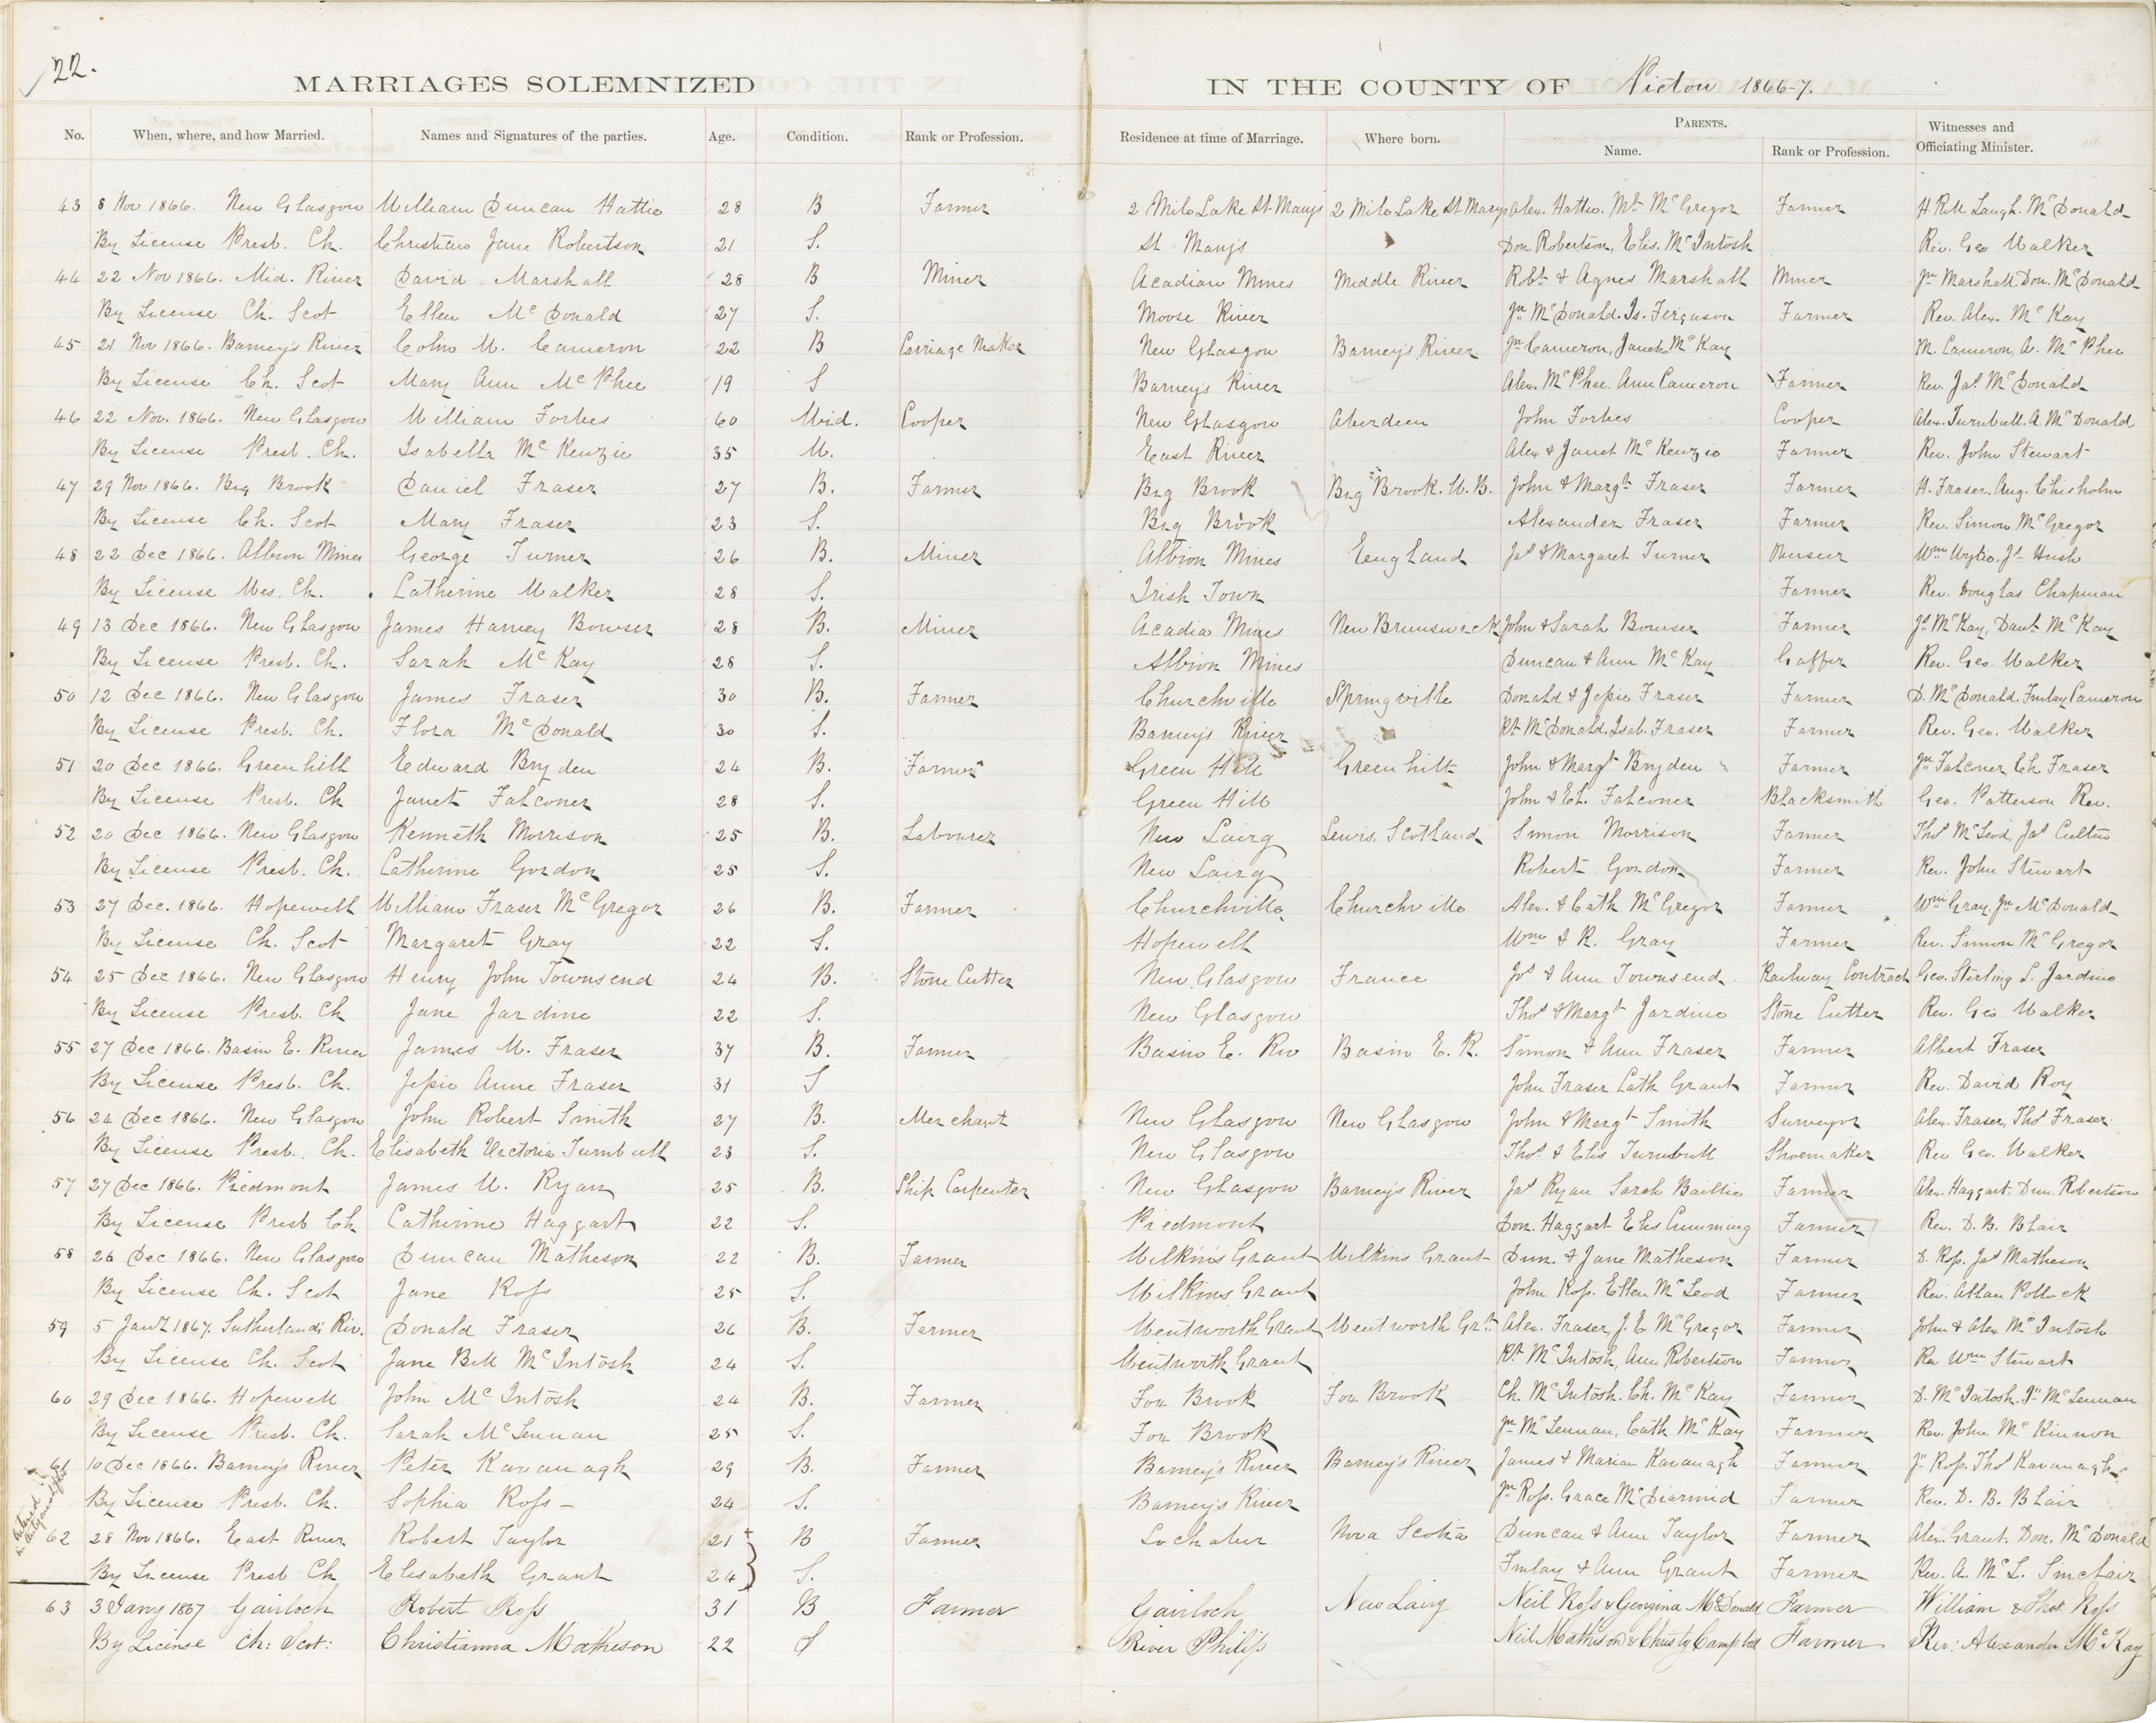 22.
MARRIAGES SOLEMNIZED IN THE COUNTY OF Pictou 1866-7.
No. When, where, and how Married. Names and Signatures of the parties. Age. Condition. Rank or Profession. Residence at time of Marriage. Where born. PARENTS. Name. Rank or Profession. Witnesses and Officiating Minister.
43 8 Nov 1866. New Glasgow William Duncan Hattie 28 B Farmer 2 Mile Lake St Marys 2 Mile Lake St Marys Alex. Hattie. Mt McGregor Farmer H. Rill Laugh. McDonald
By License Presb. Ch. Christian Jane Robertson 21 S. St Marys Don Robertson, Elis. McIntosh Rev. Geo Walker
44 22 Nov 1866. Mid. River David Marshall 28 B Miner Acadian Mines Middle River Robt & Agnes Marshall Miner Jn Marshall Don. McDonald
By License Ch. Scot Ellen McDonald 27 S. Moose River Jn McDonald. Is. Ferguson Farmer Rev. Alex. McKay
45 21 Nov 1866. Barney's River Colin W. Cameron 22 B Carriage Maker New Glasgow Barney's River Jn Cameron, Janet McKay M. Cameron, A. McPhee
By License Ch. Scot Mary Ann McPhee 19 S Barney's River Alex. McPhee Ann Cameron Farmer Rev. Jas McDonald
46 22 Nov. 1866. New Glasgow William Forbes 60 Wid. Cooper New Glasgow Aberdeen John Forbes Cooper Alex. Turnbull. A McDonald
By License Presb. Ch. Isabella McKenzie 35 W. East River Alex & Janet McKenzie Farmer Rev. John Stewart
47 29 Nov 1866. Big Brook Daniel Fraser 27 B. Farmer Big Brook Big Brook. W. B. John & Margt Fraser Farmer H. Fraser. Aug. Chisholm
By License Ch. Scot Mary Fraser 23 S. Big Brook Alexander Fraser Farmer Rev. Simon McGregor
48 22 Dec 1866. Albion Mines George Turner 26 B. Miner Albion Mines Eengland Jas & Margaret Turner Wm Wylie. Js Hush
By License Wes. Ch. Catherine Walker 28 S. Irish Town Farmer Rev. Douglas Chapman
49 13 Dec 1866. New Glasgow James Harvey Bowser 28 B. Miner Acadia Mines New Brunswick John & Sarah Bowser Farmer Js McKay, Danl McKay
By License Presb. Ch. Sarah McKay 28 S. Albion Mines Duncan & Ann McKay Gaffer Rev. Geo. Walker
50 12 Dec 1866. New Glasgow James Fraser 30 B. Farmer Churchville Springville Donald & Jessie Fraser Farmer D. McDonald. Finlay Cameron
By License Presb. Ch. Flora McDonald 30 S. Barney's River Rt McDonald. Isab. Fraser Farmer Rev. Geo. Walker
51 20 Dec 1866. Greenhill Edward Bryden 24 B. Farmer Green Hill Greenhill John & Margt Bryden Farmer Jn Falconer, Ch. Fraser
By License Presb. Ch Janet Falconer 28 S. Green Hill John & El. Falconer Blacksmith Geo. Patterson Rev.
52 20 Dec 1866. New Glasgow Kenneth Morrison 25 B. Labourer New Lairg Lewis, Scotland Simon Morrison Farmer Thos McLeod, Jas Cultin
By License Presb. Ch. Catherine Gordon 25 S. New Lairg Robert Gordon Farmer Rev. John Stewart
53 27 Dec. 1866. Hopewell William Fraser McGregor 26 B. Farmer Churchville Churchville Alex. & Cath McGregor Farmer Wm Gray. Jn McDonald
By License Ch. Scot Margaret Gray 22 S. Hopewell Wm & R. Gray Farmer Rev. Simon McGregor
54 25 Dec 1866. New Glasgow Henry John Townsend 24 B. Stone Cutter New Glasgow France Js & Ann Townsend Railway Contract Geo. Stirling S. Jardine
By License Presb. Ch Jane Jardine 22 S. New Glasgow Thos & Margt Jardine Stone Cutter Rev. Geo Walker
55 27 Dec 1866. Basin E. River James W. Fraser 37 B. Farmer Basin E. Riv Basin E. R. Simon & Ann Fraser Farmer Albert Fraser
By License Presb. Ch. Jessie Anne Fraser 31 S John Fraser Cath Grant Farmer Rev. David Roy
56 24 Dec 1866. New Glasgow John Robert Smith 27 B. Merchant New Glasgow New Glasgow John & Margt Smith Surveyor Alex. Fraser, Thos Fraser.
By License Presb. Ch. Elisabeth Victoria Turnbull 23 S. New Glasgow Thos. & Elis Turnbull Shoemaker Rev Geo. Walker
57 27 Dec 1866. Piedmont James W. Ryan 25 B. Ship Carpenter New Glasgow Barney's River Jas Ryan Sarah Baillie Farmer Alex. Haggart. Dun. Robertson
By License Presb Ch Catherine Haggart 22 S. Piedmont Don. Haggart Elis Cumming Farmer Rev. D. B. Blair
58 26 Dec 1866. New Glasgow Duncan Matheson 22 B. Farmer Wilkins Grant Wilkins Grant Dun. & Jane Matheson Farmer D. Ross. Jas Matheson
By License Ch. Scot Jane Ross 25 S. Wilkins Grant John Ross. Ellen McLeod Farmer Rev. Allan Pollock
59 5 Jany 1867. Sutherlands Riv. Donald Fraser 26 B. Farmer Wentworth Grant Wentworth Grt Alex. Fraser, J. E McGregor Farmer John & Alex McIntosh
By License Ch. Scot Jane Bell McIntosh 24 S. Wentworth Grant Rt McIntosh, Ann Robertson Farmer Rev Wm Stewart
60 29 Dec 1866. Hopewell John McIntosh 24 B. Farmer Fox Brook Fox Brook Ch. McIntosh. Ch. McKay Farmer D. McIntosh. Jn McLennan
By License Presb. Ch. Sarah McLennan 25 S. Fox Brook Jn McLennan, Cath McKay Farmer Rev. John McKinnon
61 10 Dec 1866. Barney's River Peter Kavanagh 29 B. Farmer Barney's River Barney's River James & Maria Kavanagh Farmer Js Ross. Thos Kavanagh
By License Presb. Ch. Sophia Ross 24 S. Barney's River Jn Ross. Grace McDiarmid Farmer Rev. D. B. Blair
62 28 Nov 1866. East River Robert Taylor 21 B Farmer Lochaber Nova Scotia Duncan & Ann Taylor Farmer Alex. Grant. Don. McDonald
By License Presb Ch Elisabeth Grant 24 S. Finlay & Ann Grant Farmer Rev. A. McL. Sinclair
63 3 Jany 1867 Gairloch Robert Ross 31 B Farmer Gairloch New Lairg Neil Ross & Georgina McDonald Farmer William & Thos Ross
By License Ch: Scot: Christianna Matheson 22 S River Philip Neil Matheson & Christy Campbell Farmer Rev: Alexander McKay